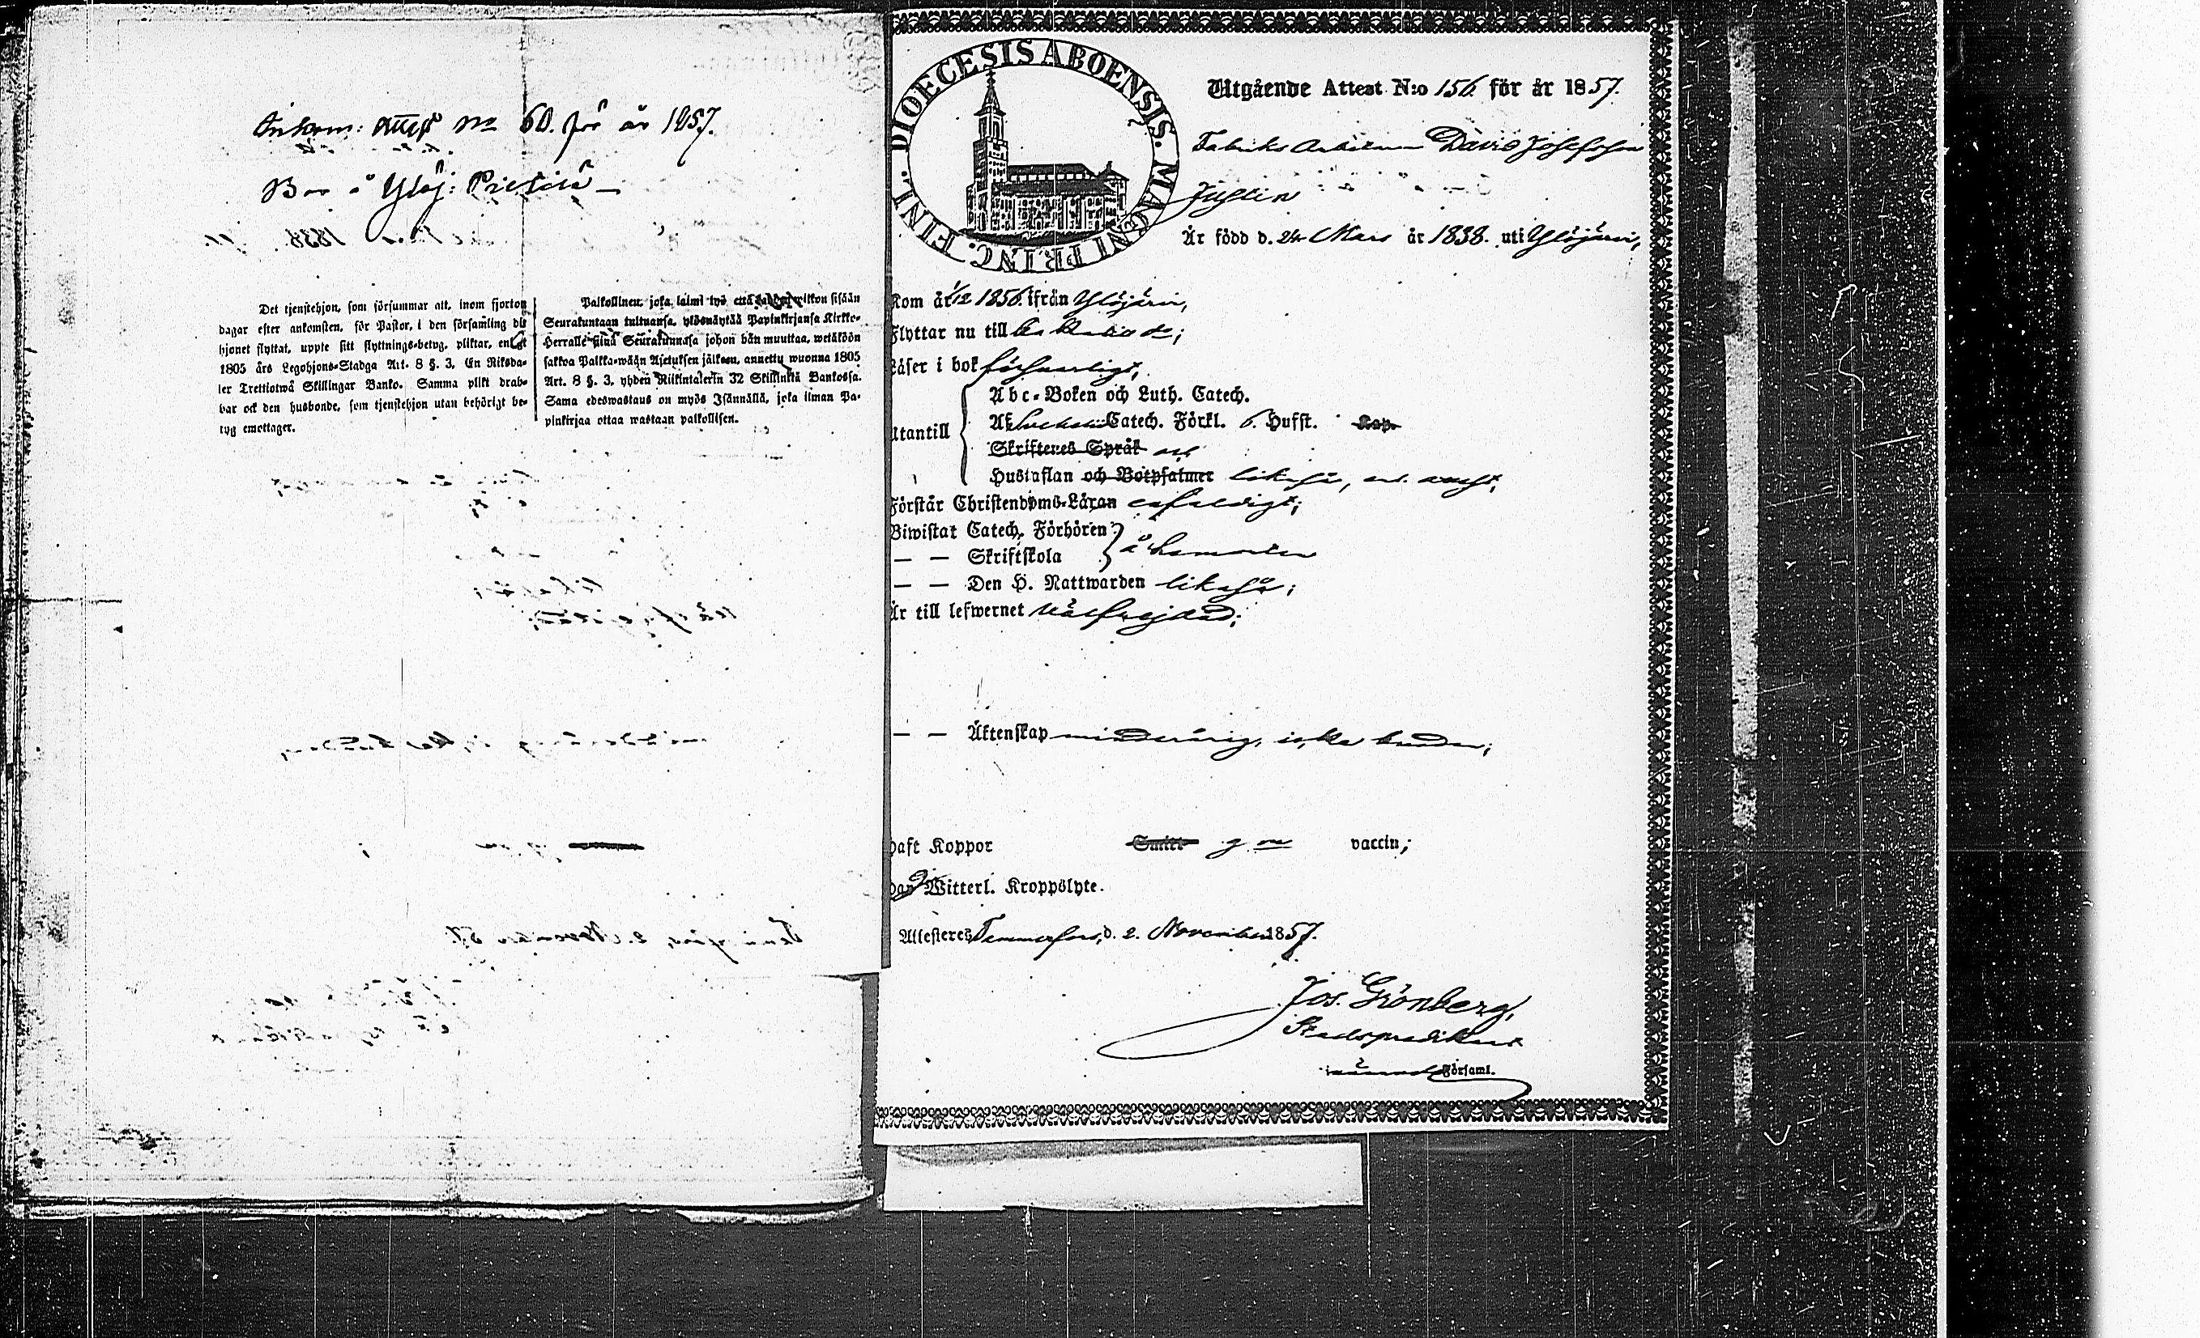 Inkom: Attest No 60. för år 1857.
Bor å Ylöj:
Det tjenstehjon, som försummar att, inom fjorton
dagar efter ankomsten, för Pastor, i den församling dit
hjonet flyttat, uppte sitt flyttnings-betyg, pliktar, enligt
1805 års Legohjons-Stadga Art. 8 §. 3, En Riksda-
ler Trettiotwå Skillingar Banko. Samma plikt drab-
bar ock den husbonde, som tjenstehjon utan behörigt be-
tyg emottager.
Palkollinen, joka laimi lyö että wiikon sisään
Seurakuntaan tultuansa, ylösnäytää Papinkirjansa Kirkko-
Herralle siinä Seurakunnasa johon hän muuttaa, wetäköön
sakkoa Palkka-wään Asetuksen jälkeen, annettu wuonna 1805
Art. 8 §. 3, yhden Riikintalerin 32 Skillinkiä Bankossa.
Sama edeswastaus on myös Isännällä, joka ilman Pa-
pinkirjaa ottaa wastaan palkollisen.
DIOECESIS ABOENSIS. MAGNI PRINC. FINL.
Utgående Attest N:o 156 för år 1857.
Fabriks Arbetaren David Josefsson
Justin
Är född d. 24 Mars år 1838. uti Ylöjärvi,
Kom år 1/12 1856. ifrån Ylöjärvi,
Flyttar nu till
Läser i bok försvarligt,
Abc-Boken och Luth. Catech.
Utantill Af Catech. Förkl. 6. Hufst. Kap.
Skriftenes Språk och
Hustaflan och Botpsalmer likaså,
Förstår Christendoms-Läran enfaldigt;
Biwistat Catech. Förhören
— — Skriftskola
— — Den H. Nattwarden likaså;
Är till lefwernet välfrejdad;
— — Äktenskap minderårig, icke bunden;
Haft Koppor Smitt genom vaccin;
Witterl. Kroppslyte.
Attesteres Tammerfors, d. 2. November 1857.
Jos. Grönberg,
Stadspredikant
Församl.